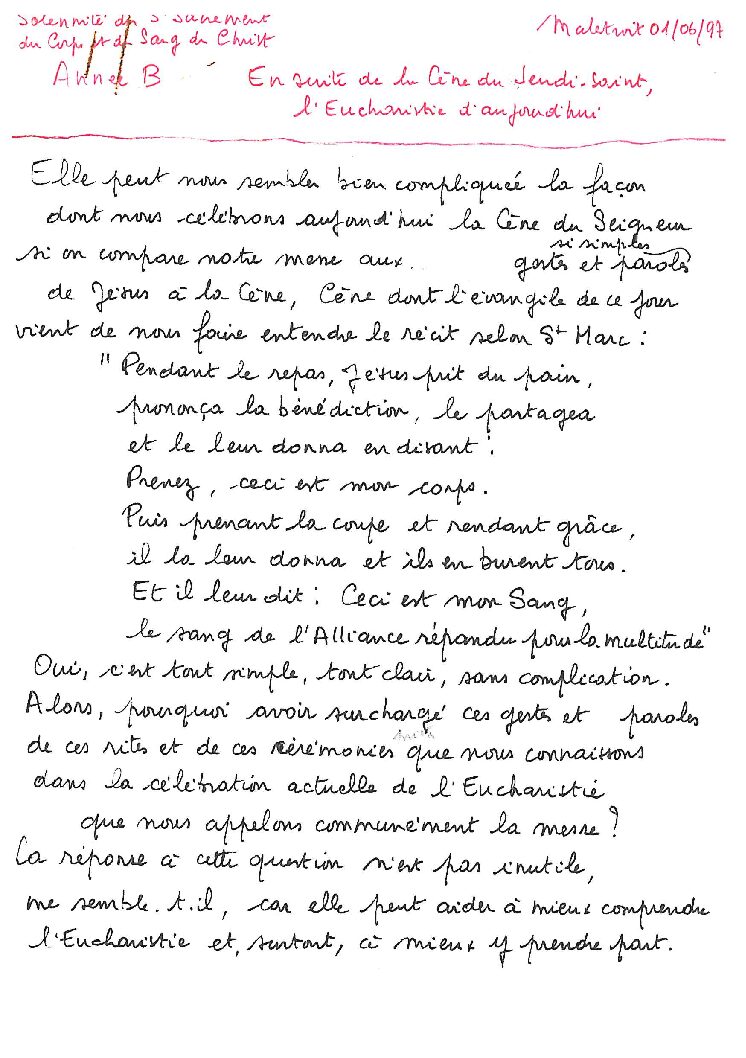 Solennité du St Sacrement
du Corps et du Sang du Christ
Malestroit 01/06/97
Année B
En suite de la Cène du Jeudi-Saint,
l'Eucharistie d'aujourd'hui
Elle peut nous sembler bien compliquée la façon
dont nous célébrons aujourd'hui la Cène du Seigneur
si on compare notre messe aux si simples gestes et paroles
de Jésus à la Cène, Cène dont l'évangile de ce jour
vient de nous faire entendre le récit selon St Marc :
"Pendant le repas, Jésus prit du pain,
prononça la bénédiction, le partagea
et le leur donna en disant :
Prenez, ceci est mon corps.
Puis prenant la coupe et rendant grâce,
il la leur donna et ils en burent tous.
Et il leur dit : Ceci est mon Sang,
le sang de l'Alliance répandu pour la multitude"
Oui, c'est tout simple, tout clair, sans complication.
Alors, pourquoi avoir surchargé ces gestes et paroles
de ces rites et de ces cérémonies que nous connaissons
dans la célébration actuelle de l'Eucharistie
que nous appelons communément la messe ?
La réponse à cette question n'est pas inutile,
me semble-t-il, car elle peut aider à mieux comprendre
l'Eucharistie et, surtout, à mieux y prendre part.